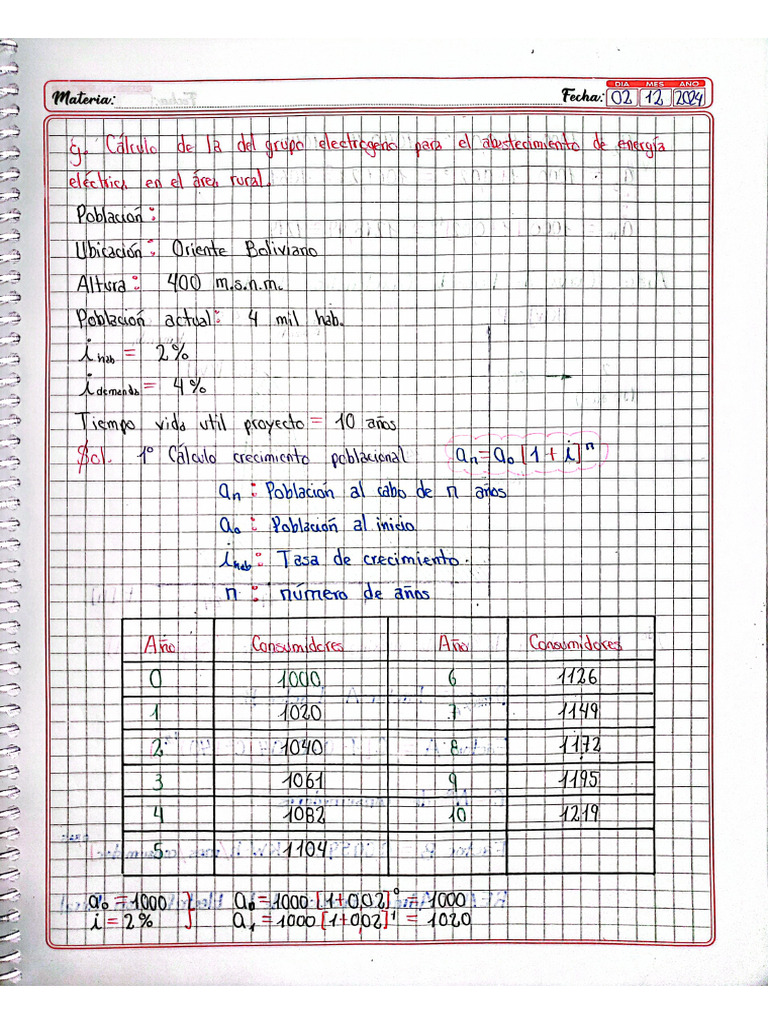 Materia:
Fecha: DIA MES AÑO
02 12 2024
Ej. Cálculo de la del grupo electrógeno para el abastecimiento de energía
eléctrica en el área rural.
Población:
Ubicación: Oriente Boliviano
Altura: 400 m.s.n.m.
Población actual: 4 mil hab.
i hab = 2%
i demanda = 4%
Tiempo vida util proyecto = 10 años
Sol. 1º Cálculo crecimiento poblacional an = a0 [1 + i]^n
an : Población al cabo de n años
a0 : Población al inicio
i hab : Tasa de crecimiento.
n : número de años
Año Consumidores Año Consumidores
0 1000 6 1126
1 1020 7 1149
2 1040 8 1172
3 1061 9 1195
4 1082 10 1219
5 1104
a0 = 1000 ] a0 = 1000·[1+0,02]^0 = 1000
i = 2% ] a1 = 1000[1+0,02]^1 = 1020